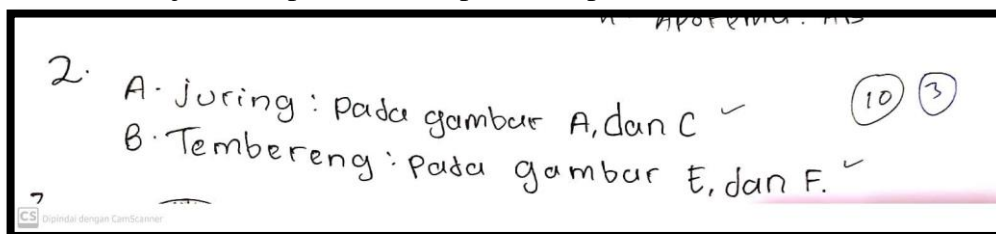 Apotema : AB
2.
A. Juring : pada gambar A, dan C ✓
10 3
B. Tembereng : pada gambar E, dan F. ✓
CS Dipindai dengan CamScanner